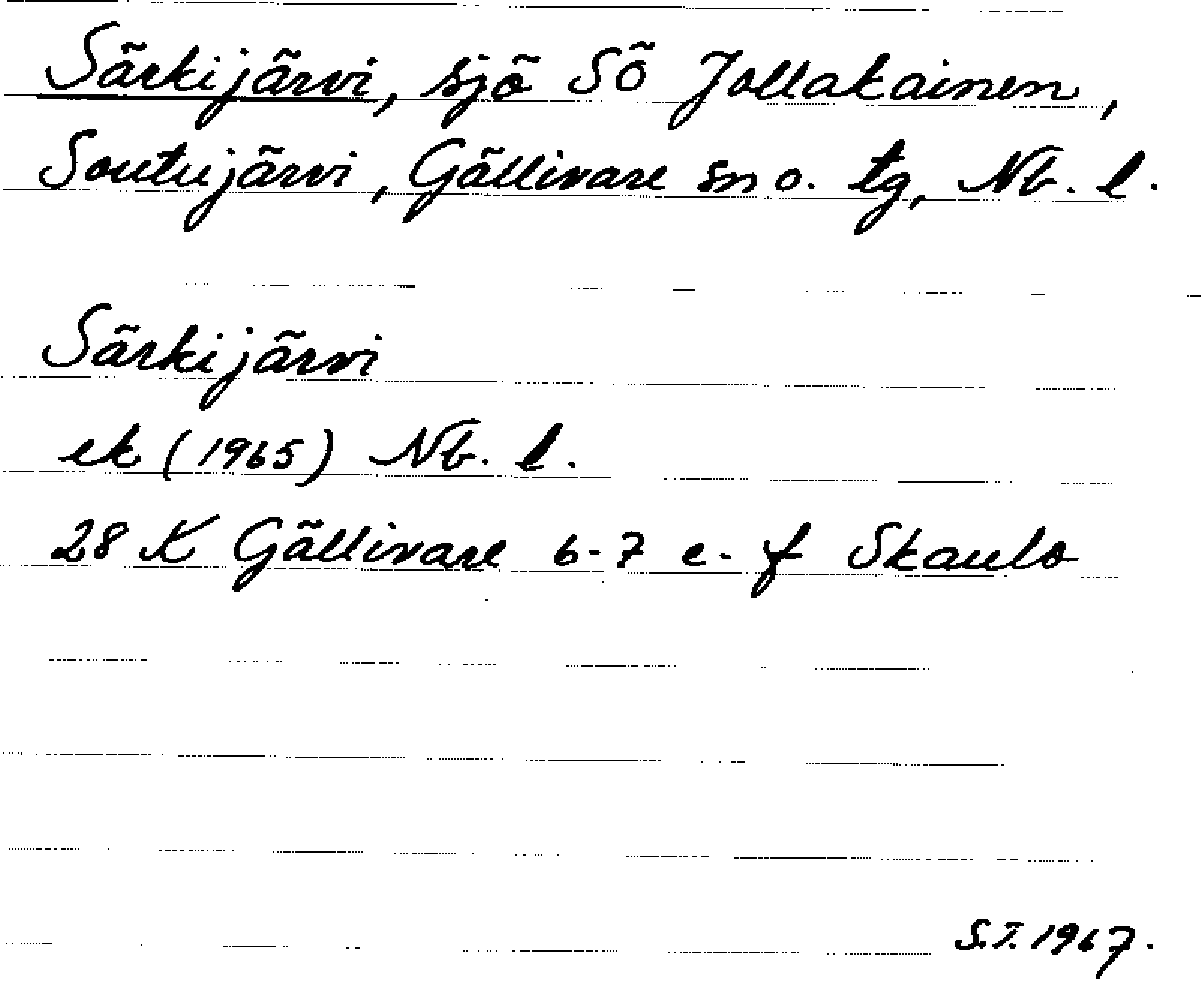 Särkijärvi, sjö SÖ Jollakainen,
Soutujärvi, Gällivare sn o. tg, Nb. l.
Särkijärvi
ek (1965) Nb. l.
28 K Gällivare 6-7 e-f Skaulo
S.T. 1967.